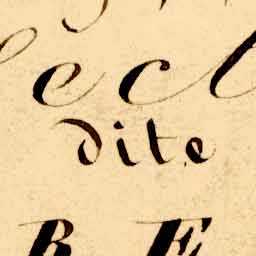 ecl
dite
R E